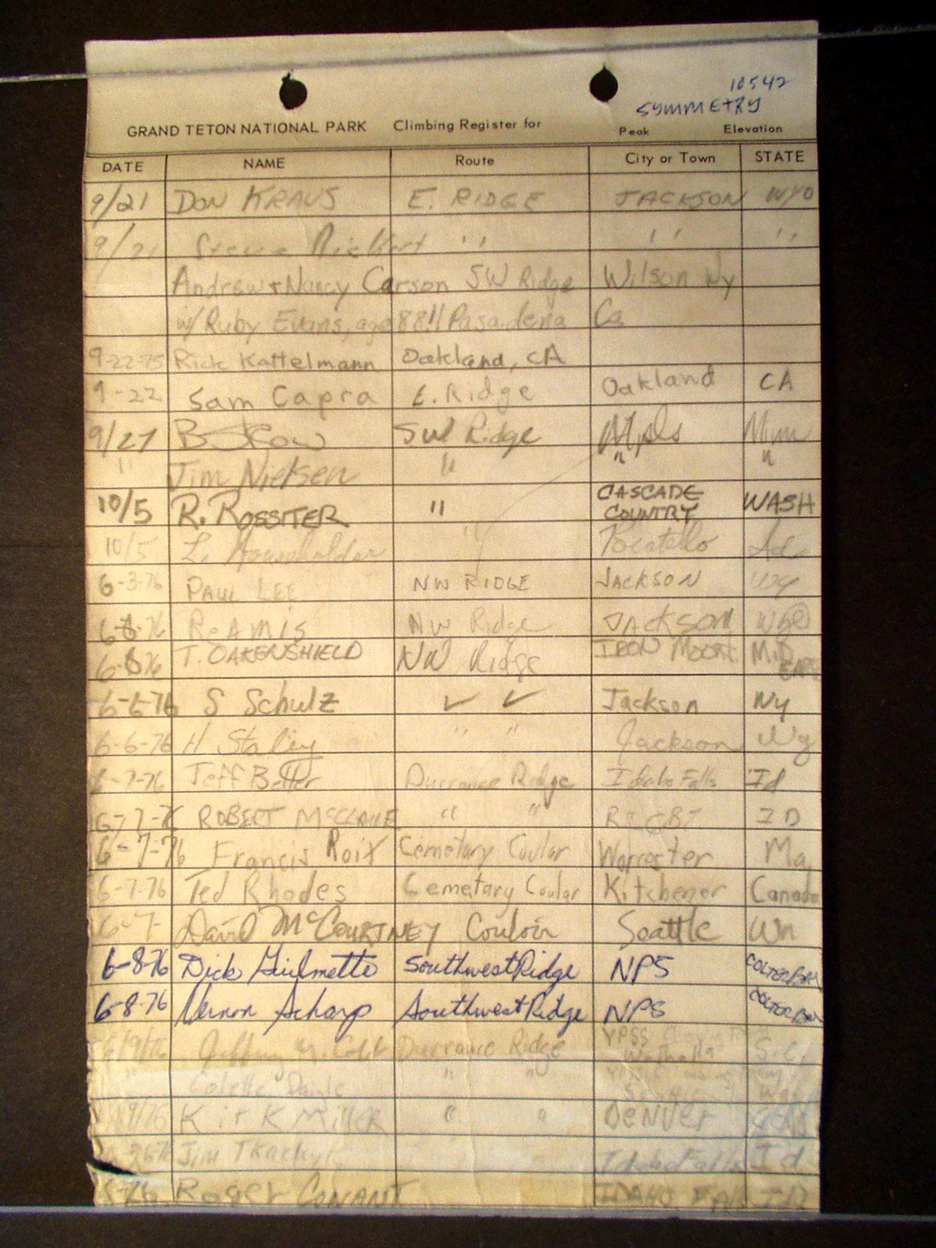 10542
SYMMETRY
GRAND TETON NATIONAL PARK Climbing Register for Peak Elevation
DATE NAME Route City or Town STATE
9/21 DON KRAUS E. RIDGE JACKSON WYO
9/21 Steve " " "
Andrew + Nancy Carson SW Ridge Wilson Wy
w/ Ruby Evans, age 88!! Pasadena Ca
9-22-75 Rick Kattelmann Oakland, CA
9-22 Sam Capra E. Ridge Oakland CA
9/27 SW Ridge Mpls Minn
" Jim Nielsen " " "
10/5 R. ROSSITER " CASCADE COUNTRY WASH
10/5 L. Householder " Pocatello
6-3-76 PAUL LEE NW RIDGE JACKSON Wy
6-8-76 R. AMIS NW Ridge JACKSON
6-8-76 T. OAKENSHIELD NW Ridge IRON MOUNT.
6-6-76 S Schulz ✓ ✓ Jackson Wy
6-6-76 H Staley " " Jackson Wy
6-7-76 Jeff Durrance Ridge Idaho Falls Id
6-7-76 ROBERT " " RIGBY ID
6-7-76 Francis Roix Cemetary Coular Worcester Ma
6-7-76 Ted Rhodes Cemetary Coular Kitchener Canada
6-7- David McCOURTNEY Couloir Seattle Wn
6-8-76 Dick Southwest Ridge NPS COLTER BAY
6-8-76 Vernon Scharp Southwest Ridge NPS COLTER BAY
Durrance Ridge YPSS Walhalla S.C.
Colette " "
KirK MilleR " " DENVER
Jim Idaho Falls Id
Roger CONANT IDAHO FALLS ID